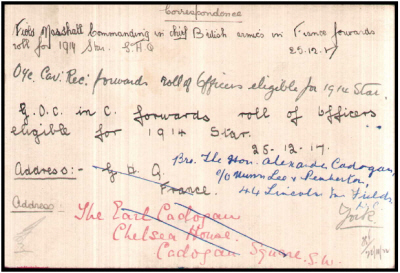 Correspondence
Field Marshall Commanding in chief British armies in France forwards
roll for 1914 Star. G.H.Q 25.12.17
O i/c Cav: Rec: forwards roll of Officers eligible for 1914 Star.
G.O.C. in C. forwards roll of officers
eligible for 1914 Star.
25-12-17.
Address:- G H Q.
France.
Bro. The Hon. Alexander Cadogan,
c/o Lee & Pemberton,
44 Lincoln's Inn Fields
W.C.
York
Address
The Earl Cadogan
Chelsea House.
Cadogan Square. S.W.